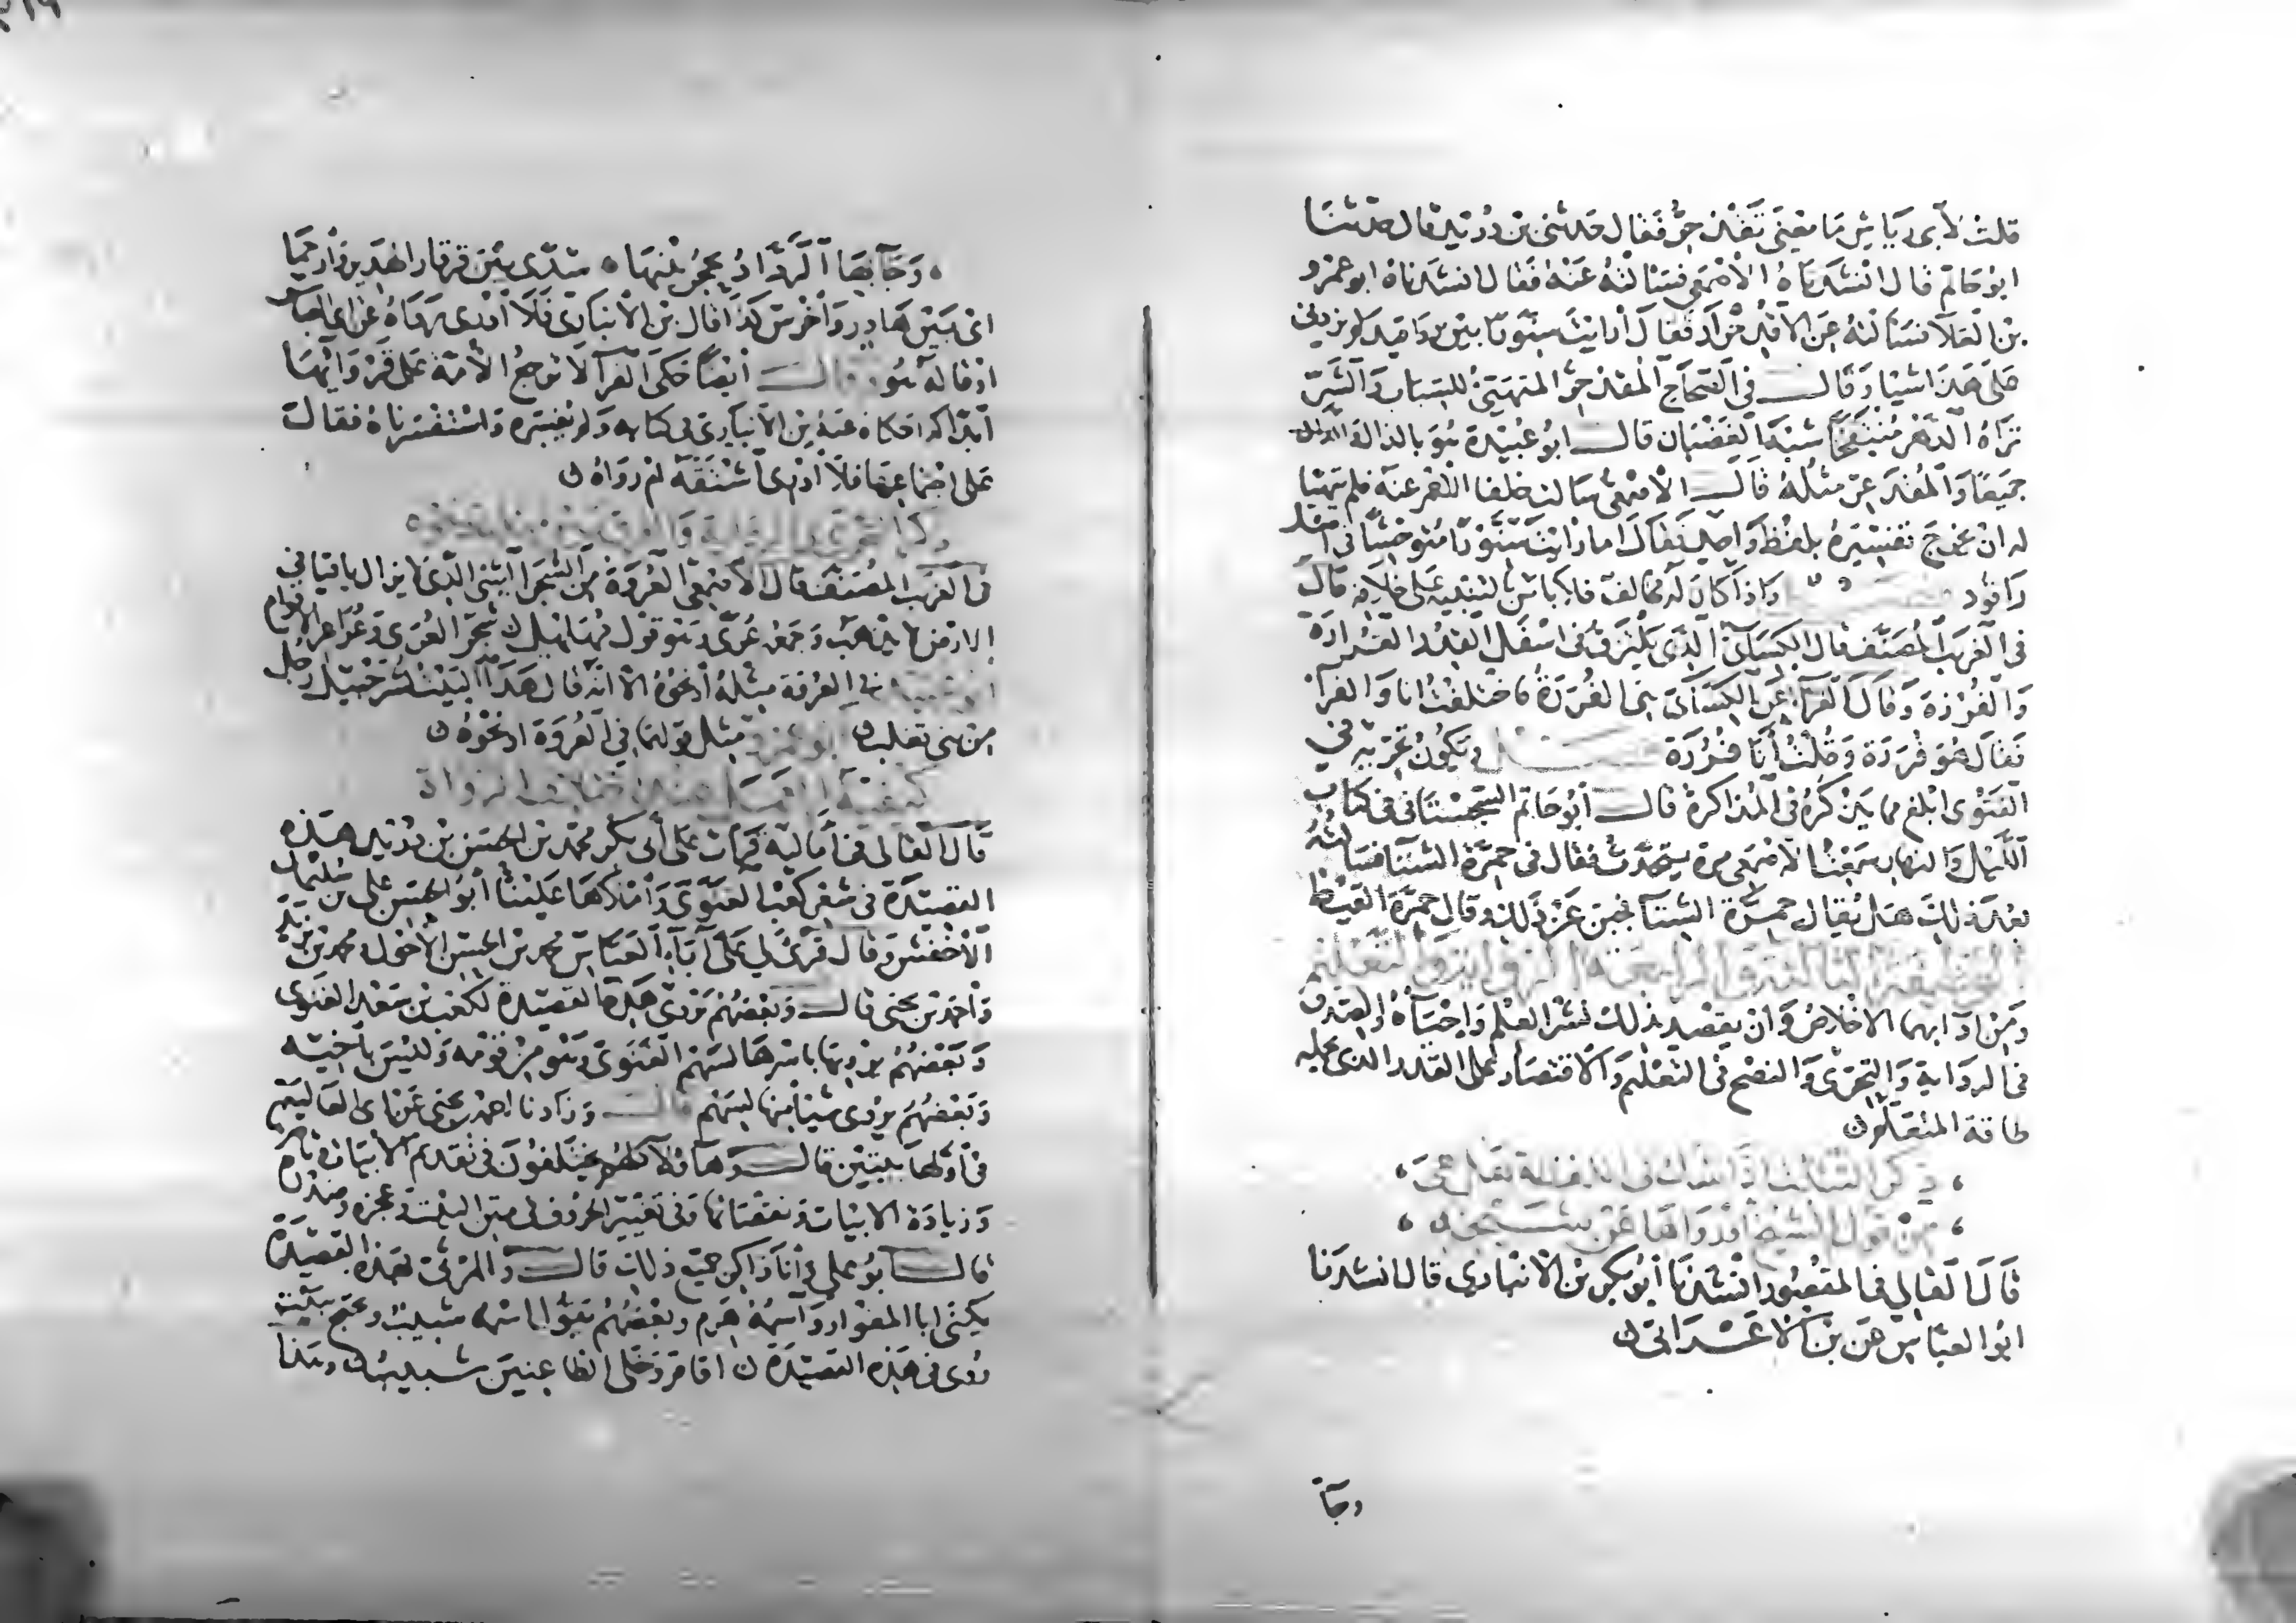 قلت لأبي رياش ما معنى تقذحر فقال حدثني بن دريد قال حدثنا
ابو حاتم قال انشدناه الأصمعي فسألته عنه فقال انشدناه ابو عمرو
بن العلاء فسألته عن الاقذحرار فقال أرايت سنورا بين رواقيد لم يزدني
على هذا شيا وقال في الصحاح المقذحر المتهيئ للسباب والشر
تراه الدهر منتفخا شبه الغضبان قال ابو عبيدة هو بالذال والدال
جميعا والمقذعر مثله قال الاصمعي سالت خلفا الاحمر عنه فلم يتهيا
له ان يخرج تفسيره بلفظ واحد فقال اما رايت سنورا متوحشا في اصل
راقود واذا كان له مخالف فلا باس بالتنبيه على خلافه قال
في الغريب المصنف قال الكسائي الذي يلتزق في اسفل القدر القرارة
والقرورة وقال الفراء عن الكسائي هي القررة فاختلفت انا والفراء
فقال هو قررة وقلت أنا قررة ويكون تحريه في
الفتوى ابلغ مما يذكره في المذاكرة قال أبو حاتم السجستاني في كتاب
الليل والنهار سمعت الاصمعي مرة يتحدث فقال في حمرة الشتاء فسألته
بعد ذلك هل يقال حمرة الشتاء فجبن عن ذلك وقال حمرة القيظ
ومن ادابهما الاخلاص وان يقصد بذلك نشر العلم واحياه والصدق
في الرواية والتحري والنصح في التعليم والاقتصار على القدر الذي تحمله
طاقة المتعلم
، ذكر التثبت اذا شك في اللفظة هل هي ،
، من قول الشيخ أو رواها عن شيخه ،
قال القالي في المقصور انشدنا أبو بكر بن الانباري قال انشدنا
ابو العباس عن بن الاعرابي
وجا
وجا بها الرواد يحجز بينها ، سدى بين قرقار الهدير وأزجما
اي بين هادر وأخرس كذا قال بن الأنباري فلا ادري رواه عن ابي العباس
او قاله هو قال أيضا حكى الفراء لا ترجع الأمة على قروائها
ابدا كذا حكاه عنه بن الأنباري في كتابه ولم يفسره واستفسرناه فقال
على اجتماعها فلا أدري اشتقه ام رواه
في الغريب المصنف قال الأصمعي العروة من الشجر الشي الذي لا يزال باقيا في
الارض لا يذهب وجمعه عرى وهو قول مهلهل شجر العرى وعراعر الاقوام
في العروة مثله أو نحوه الا انه قال هذا البيت لشرحبيل رجل
من بني تغلب ابو عمرو مثل قولهما في العروة او نحوه
كيفية العمل عند اختلاف الرواة
قال القالي في أماليه قرأت على أبي بكر محمد بن الحسن بن دريد هذه
القصيدة في شعر كعب الغنوي وأملاها علينا أبو الحسن علي بن سليمان
الأخفش وقال قرئ لي على أبي العباس محمد بن الحسن الأحول ومحمد بن يزيد
وأحمد بن يحيى قال وبعضهم يروي هذه القصيدة لكعب بن سعد الغنوي
وبعضهم يرويها باسرها لسهم الغنوي وهو من قومه وليس باخيه
وبعضهم يروي شيئا منها لسهم قال وزادنا احمد بن يحيى عن ابي العالية
في أولها بيتين قال وهاولاء كلهم مختلفون في تقديم الأبيات وتاخيرها
وزيادة الابيات ونقصانها وفي تغيير الحروف في متن البيت وعجزه وصدره
قال ابو علي وأنا ذاكر جميع ذلك قال والمرثي بهذه القصيدة
يكنى ابا المغوار واسمه هرم وبعضهم يقول اسمه شبيب ويحتج ببيت
روي في هذه القصيدة اقام وخلى الظاعنين شبيب وهذا